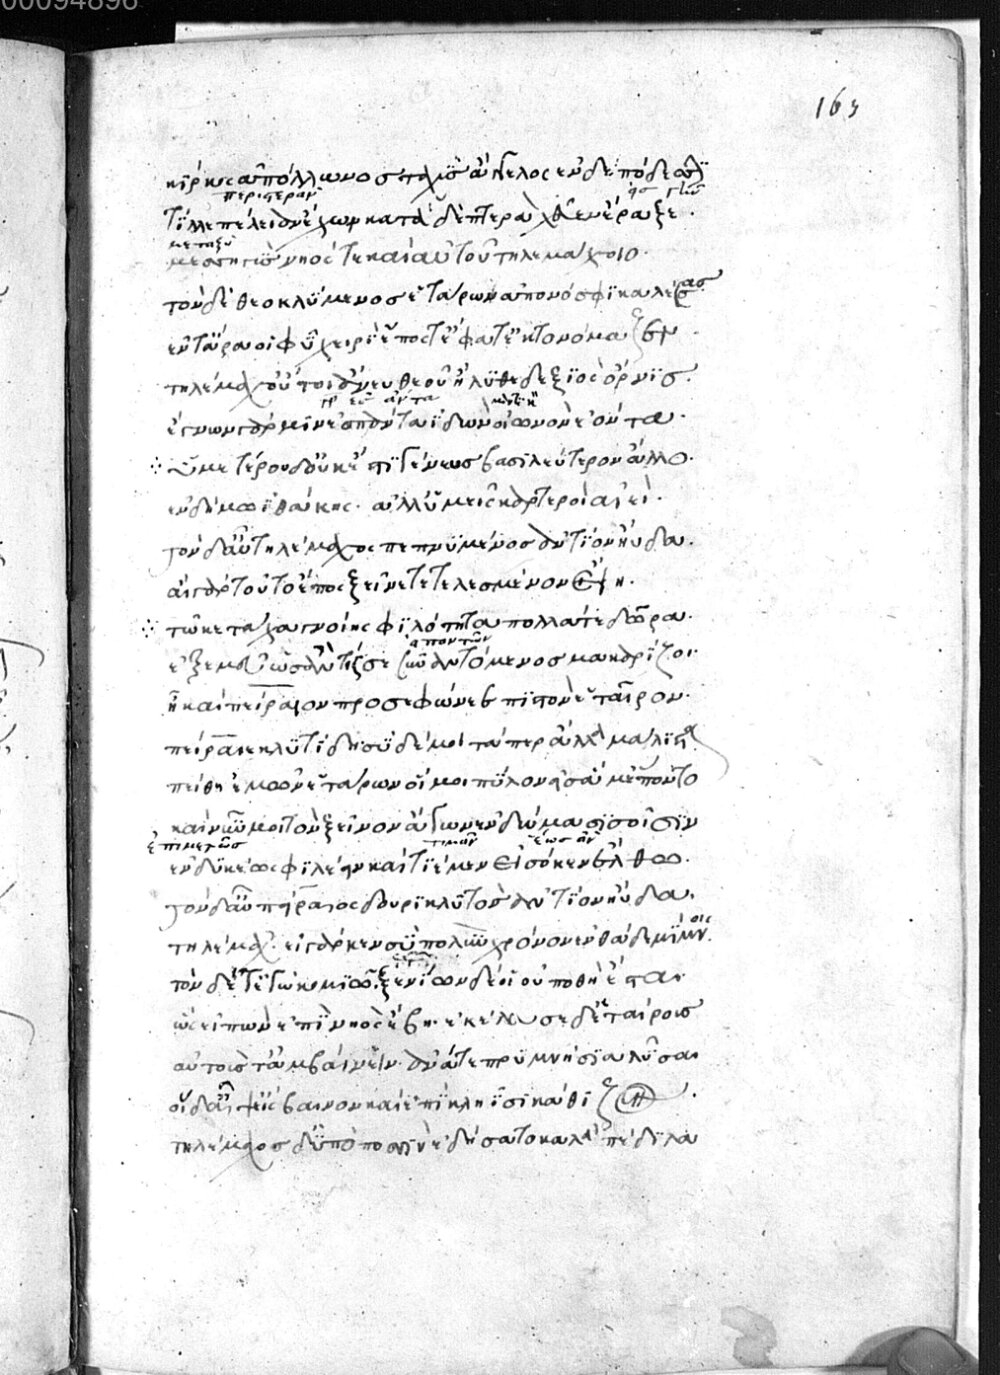 00094896
163
κίρκος ἀπόλλωνος ταχὺς ἄγγελος ἐν δὲ πόδεσσι
περιστεράν
τίλλε πέλειαν ἔχων κατὰ δὲ πτερὰ χεῦεν ἔραζε·
μεταξὺ
μεσσηγὺς νηός τε καὶ αὐτοῦ τηλεμάχοιο·
τὸν δὲ θεοκλύμενος ἑτάρων ἀπονόσφι καλέσσας
ἔν τ' ἄρα οἱ φῦ χειρὶ ἔπος τ' ἔφατ' ἔκ τ' ὀνόμαζεν·
τηλέμαχ' οὔ τοι ἄνευ θεοῦ ἤλυθε δεξιὸς ὄρνις·
ἔγνων γάρ μιν ἐσάντα ἰδὼν οἰωνὸν ἐόντα·
ὑμετέρου δ' οὐκ ἔστι γένευς βασιλεύτερον ἄλλο·
ἐν δήμω ἰθάκης· ἀλλ' ὑμεῖς καρτεροὶ αἰεί·
τὸν δ' αὖ τηλέμαχος πεπνυμένος ἀντίον ηὔδα·
αἲ γὰρ τοῦτο ἔπος ξεῖνε τετελεσμένον εἴη·
τῶ κε τάχα γνοίης φιλότητα πολλά τε δῶρα·
ἐξ ἐμεῦ ὡς ἄν τίς σε συναντόμενος μακαρίζοι·
ἦ καὶ πείραιον προσεφώνεε πιστὸν ἑταῖρον·
πείραιε κλυτίδη σὺ δέ μοι τά περ ἄλλα μάλιστα
πείθη ἐμῶν ἑτάρων οἵ μοι πύλον εἰς ἅμ' ἕποντο
καὶ νῦν μοι τὸν ξεῖνον ἄγων ἐν δώμασι σοῖσιν
ἐπιμελῶς τιμᾶν ἕως ἂν
ἐνδυκέως φιλέειν καὶ τιέμεν εἰσόκεν ἔλθω·
τὸν δ' αὖ πείραιος δουρικλυτὸς ἀντίον ηὔδα·
τηλέμαχ' εἰ γάρ κεν σὺ πολὺν χρόνον ἐνθάδε μίμνοις·
τὸν δέ τ' ἐγὼ κομιῶ ξενίων δέ οἱ οὐ ποθὴ ἔσται·
ὣς εἰπὼν ἐπὶ νηὸς ἔβη· ἐκέλευσε δ' ἑταίροις
αὐτούς τ' ἀμβαίνειν· ἀνά τε πρυμνήσια λῦσαι
οἱ δ' αἶψ' εἴσβαινον καὶ ἐπὶ κληῖσι κάθιζον·
τηλέμαχος δ' ὑπὸ ποσσὶν ἐδήσατο καλὰ πέδιλα